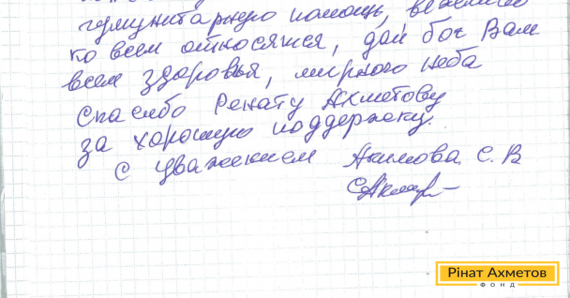 гуманитарную помощь, вежливо
ко всем относятся, дай бог Вам
всем здоровья, мирного неба
Спасибо Ренату Ахметову
за хорошую поддержку.
С уважением Акимова С. В
Рінат Ахметов
ФОНД